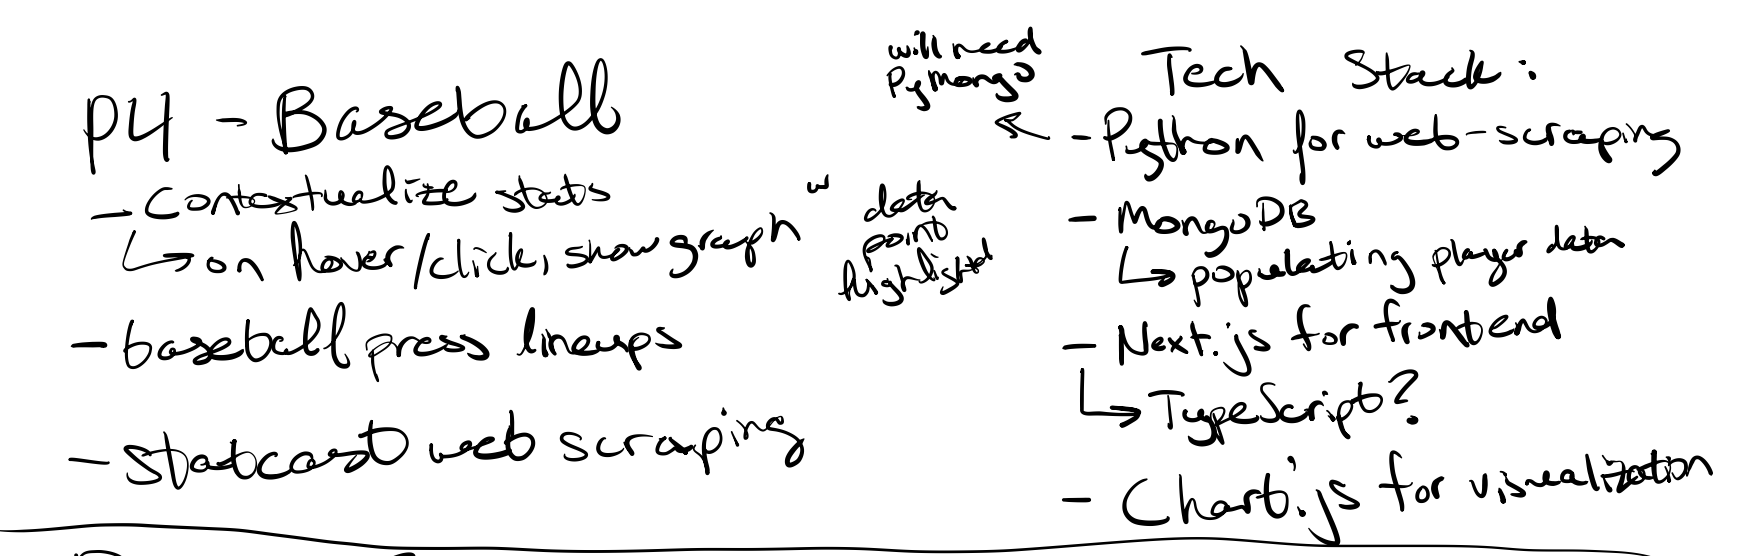 P4 - Baseball
- Contextualize stats
↳ on hover/click, show graph w
data
point
highlighted
- baseball press lineups
- statcast web scraping
will need
PyMongo
Tech Stack:
- Python for web-scraping
- MongoDB
↳ populating player data
- Next.js for frontend
↳ TypeScript?
- Chart.js for visualization